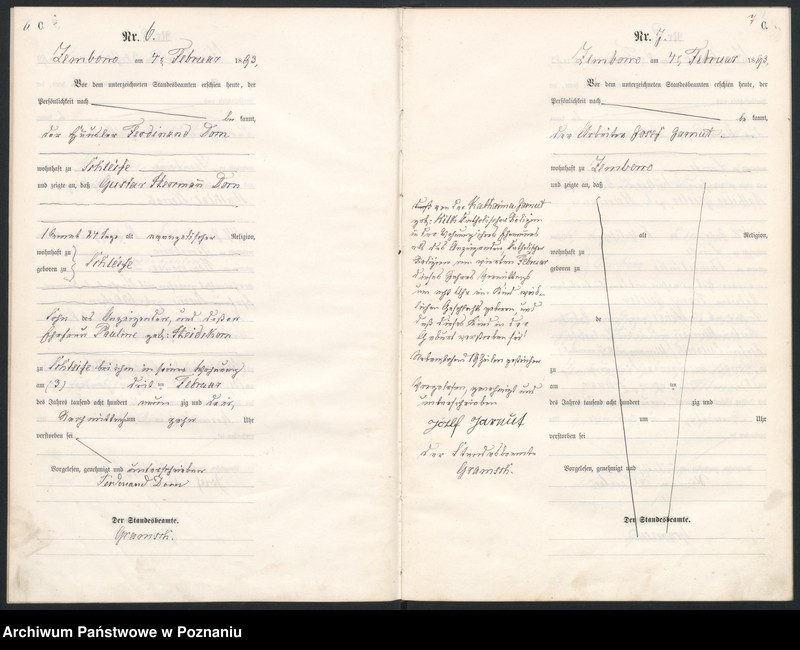 6 C.
Nr. 6.
Zembowo am 4ten Februar 1893.
Vor dem unterzeichneten Standesbeamten erschien heute, der
Persönlichkeit nach
be kannt,
der Häusler Ferdinand Dorn
wohnhaft zu Schleife
und zeigte an, daß Gustav Herrmann Dorn
1 Monat 24 Tage alt evangelischer Religion,
wohnhaft zu
geboren zu Schleife
Sohn des Anzeigenden, und dessen
Ehefrau Pauline geb:
zu Schleife bei ihm in seiner Wohnung
am (3) drit ten Februar
des Jahres tausend acht hundert neun zig und drei,
Nachmittags um zehn Uhr
verstorben sei
Vorgelesen, genehmigt und unterschrieben
Ferdinand Dorn
Der Standesbeamte.
Gramsch.
7 C.
Nr. 7.
Zembowo am 4ten Februar 1893,
Vor dem unterzeichneten Standesbeamten erschien heute, der
Persönlichkeit nach
be kannt,
der Arbeiter Josef Jarnut
wohnhaft zu Zembowo
und zeigte an, daß
alt Religion,
wohnhaft zu
geboren zu
de
zu
am ten
des Jahres tausend acht hundert zig und
um Uhr
verstorben sei
Vorgelesen, genehmigt und
Der Standesbeamte.
daß von der Katharina Jarnut
geb: katholischer Religion
in der Wohnung ihres Ehemannes
des Anzeigenden katholischer
Religion am vierten Februar
dieses Jahres Vormittags
um acht Uhr ein Kind weib-
lichen Geschlechts geboren und
daß dieses Kind in der
Geburt verstorben sei
Nebenstehend 19 Zeilen gestrichen
Vorgelesen, genehmigt und
unterschrieben
Józef Jarnut
Der Standesbeamte
Gramsch.
Archiwum Państwowe w Poznaniu